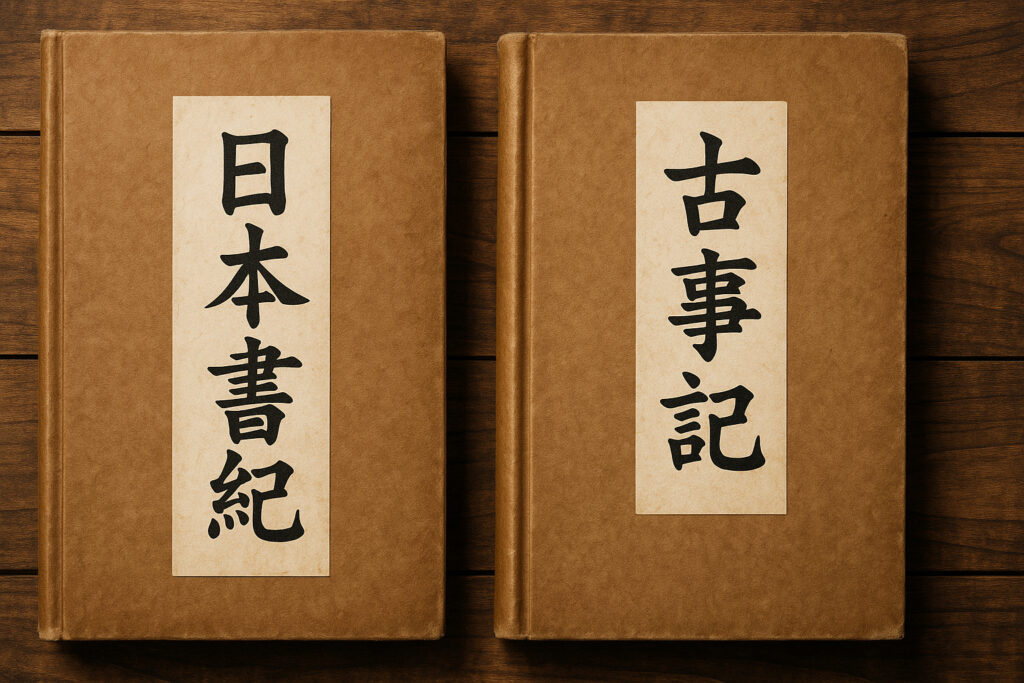 日本書紀
古事記